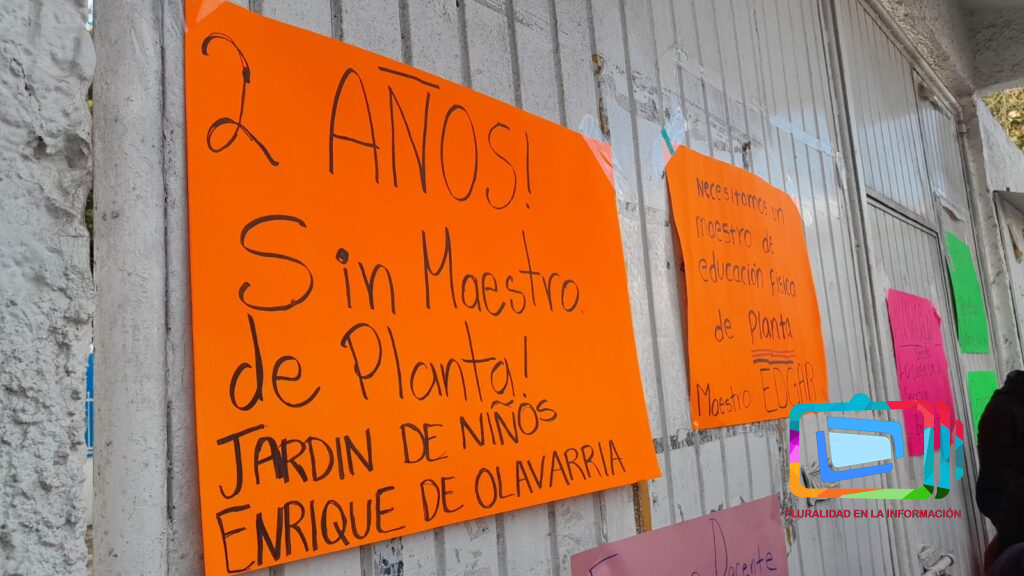 2 AÑOS!
Sin Maestro.
de Planta!
JARDIN DE NIÑOS
ENRIQUE DE OLAVARRIA
Necesitamos un
maestro de
educación física
de Planta
Maestro EDGAR
Docente
PLURALIDAD EN LA INFORMACIÓN